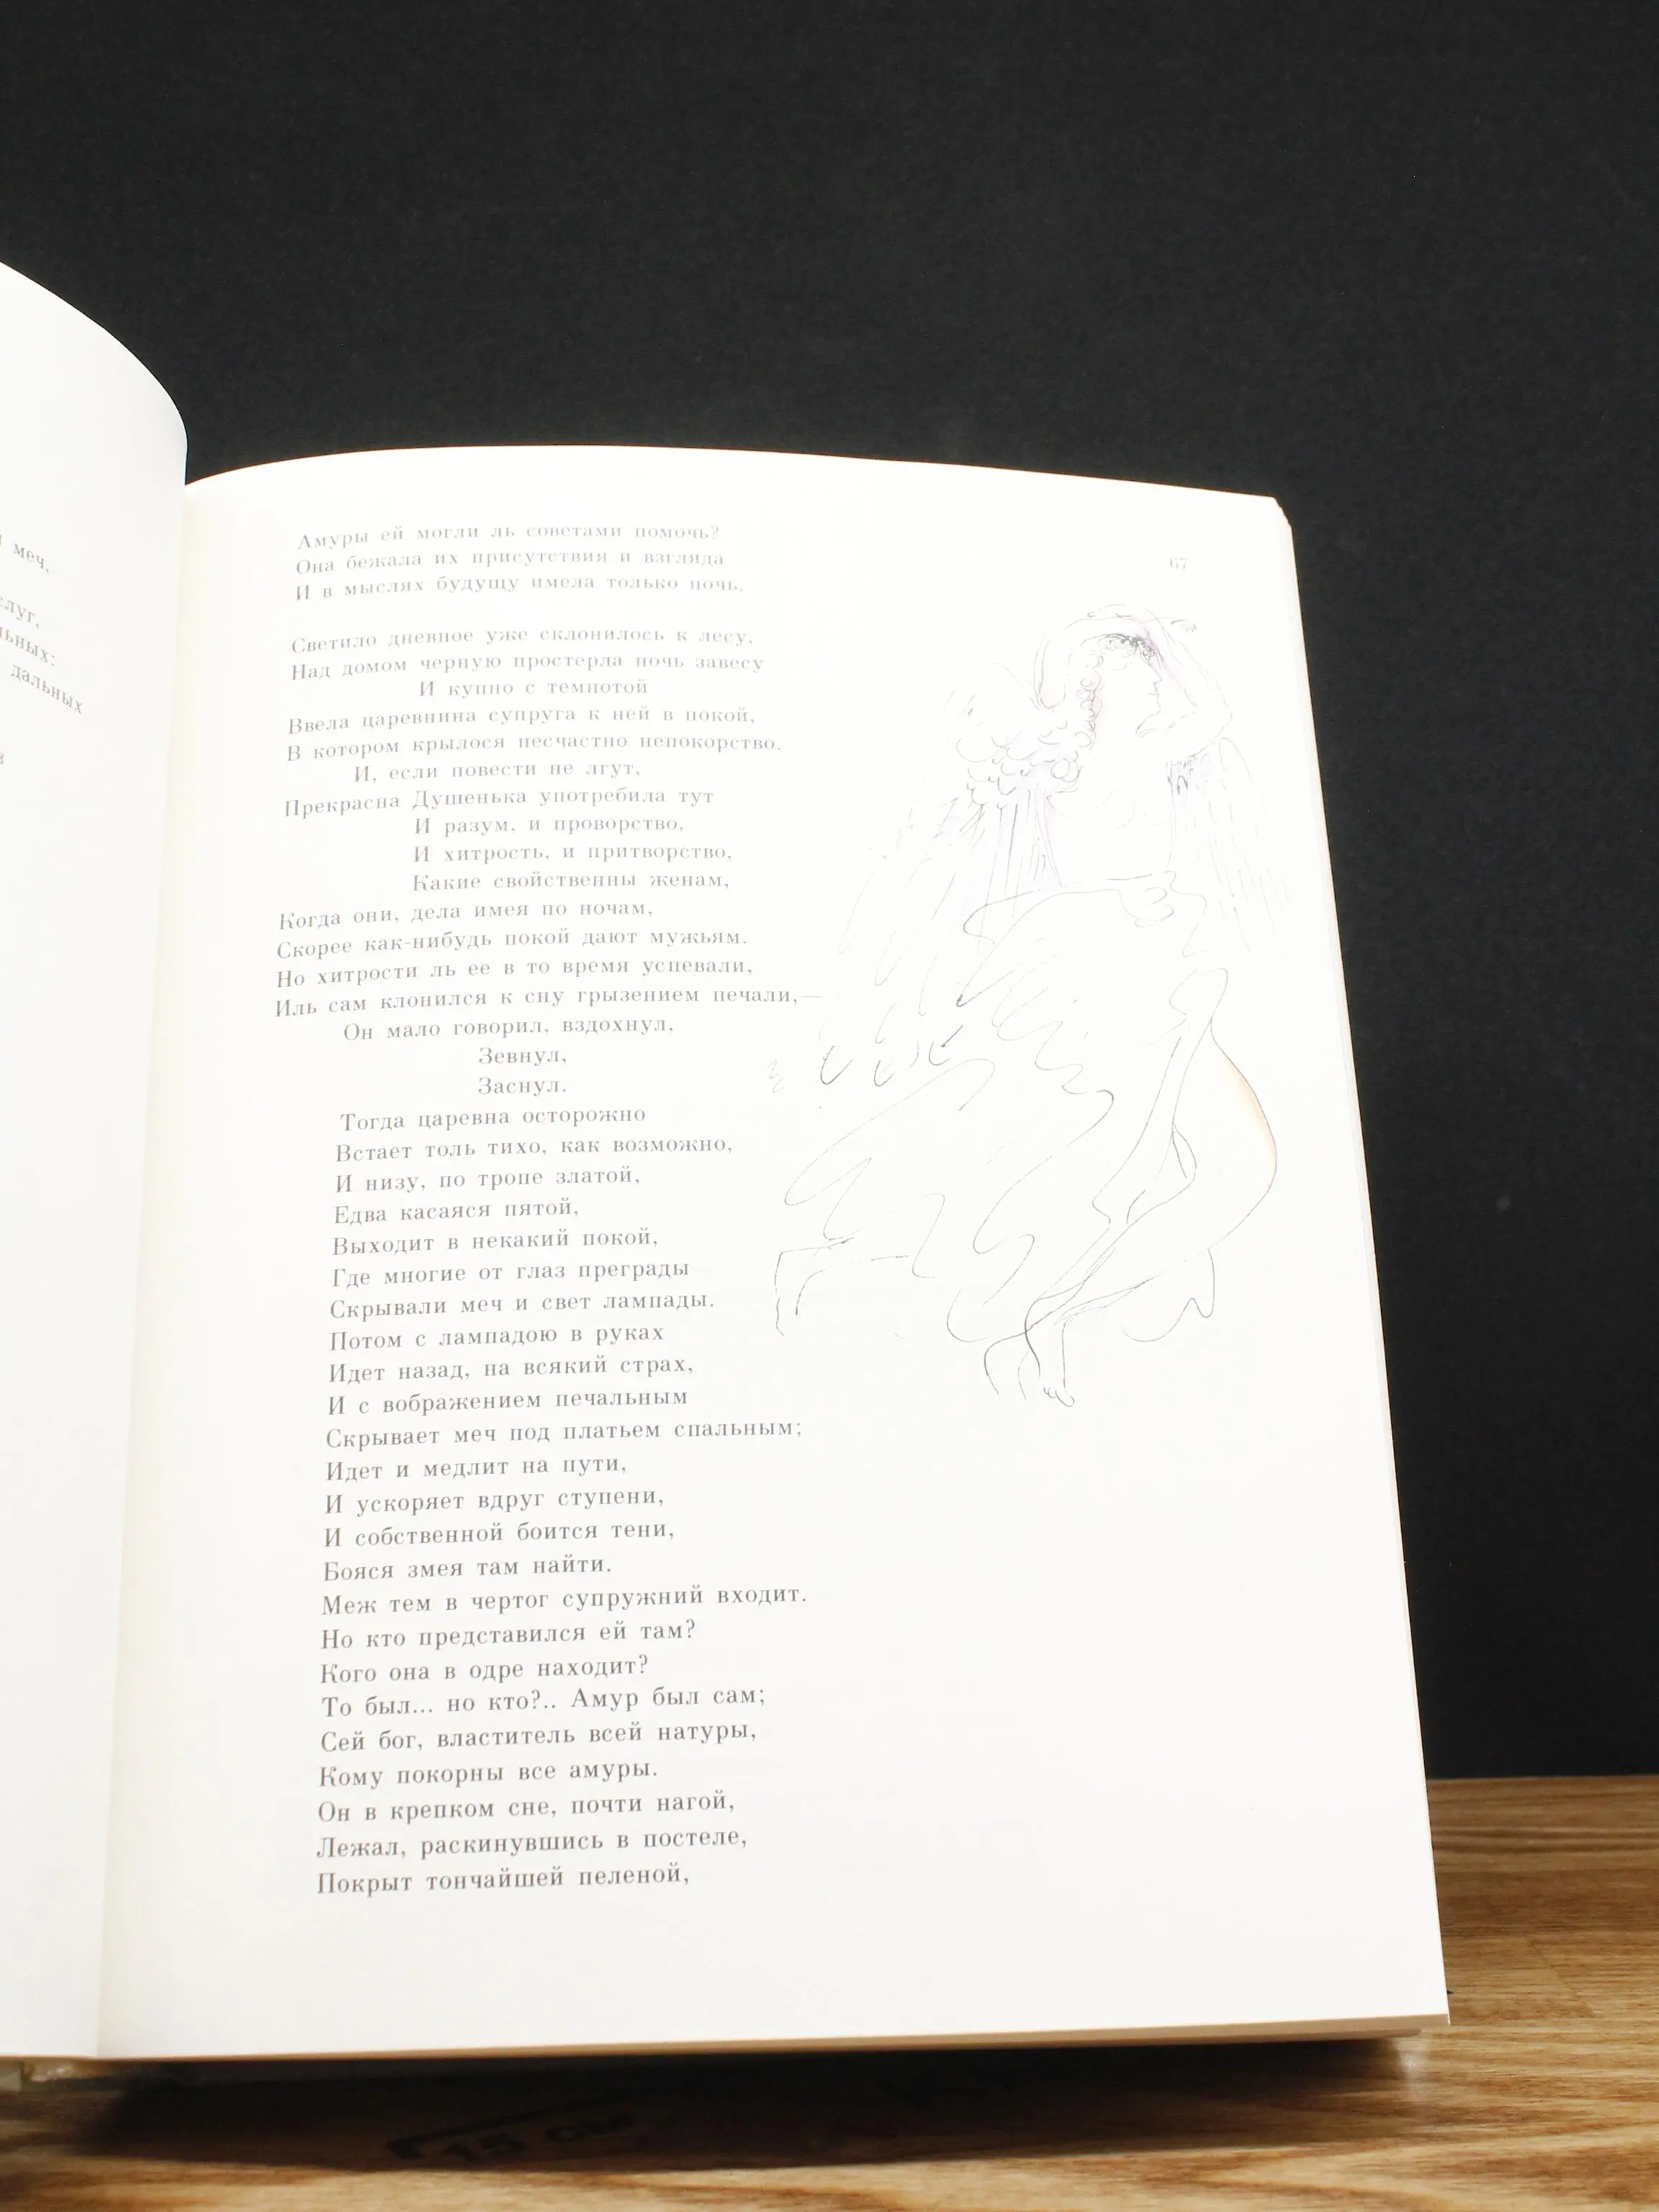 меч,
слуг,
дальных
67
Амуры ей могли ль советами помочь?
Она бежала их присутствия и взгляда
И в мыслях будущу имела только ночь.
Светило дневное уже склонилось к лесу,
Над домом черную простерла ночь завесу
И купно с темнотой
Ввела царевнина супруга к ней в покой,
В котором крылося несчастно непокорство.
И, если повести не лгут,
Прекрасна Душенька употребила тут
И разум, и проворство,
И хитрость, и притворство,
Какие свойственны женам,
Когда они, дела имея по ночам,
Скорее как-нибудь покой дают мужьям.
Но хитрости ль ее в то время успевали,
Иль сам клонился к сну грызением печали,—
Он мало говорил, вздохнул,
Зевнул,
Заснул.
Тогда царевна осторожно
Встает толь тихо, как возможно,
И низу, по тропе златой,
Едва касаяся пятой,
Выходит в некакий покой,
Где многие от глаз преграды
Скрывали меч и свет лампады.
Потом с лампадою в руках
Идет назад, на всякий страх,
И с вображением печальным
Скрывает меч под платьем спальным;
Идет и медлит на пути,
И ускоряет вдруг ступени,
И собственной боится тени,
Бояся змея там найти.
Меж тем в чертог супружний входит.
Но кто представился ей там?
Кого она в одре находит?
То был... но кто?.. Амур был сам;
Сей бог, властитель всей натуры,
Кому покорны все амуры.
Он в крепком сне, почти нагой,
Лежал, раскинувшись в постеле,
Покрыт тончайшей пеленой,
15 см